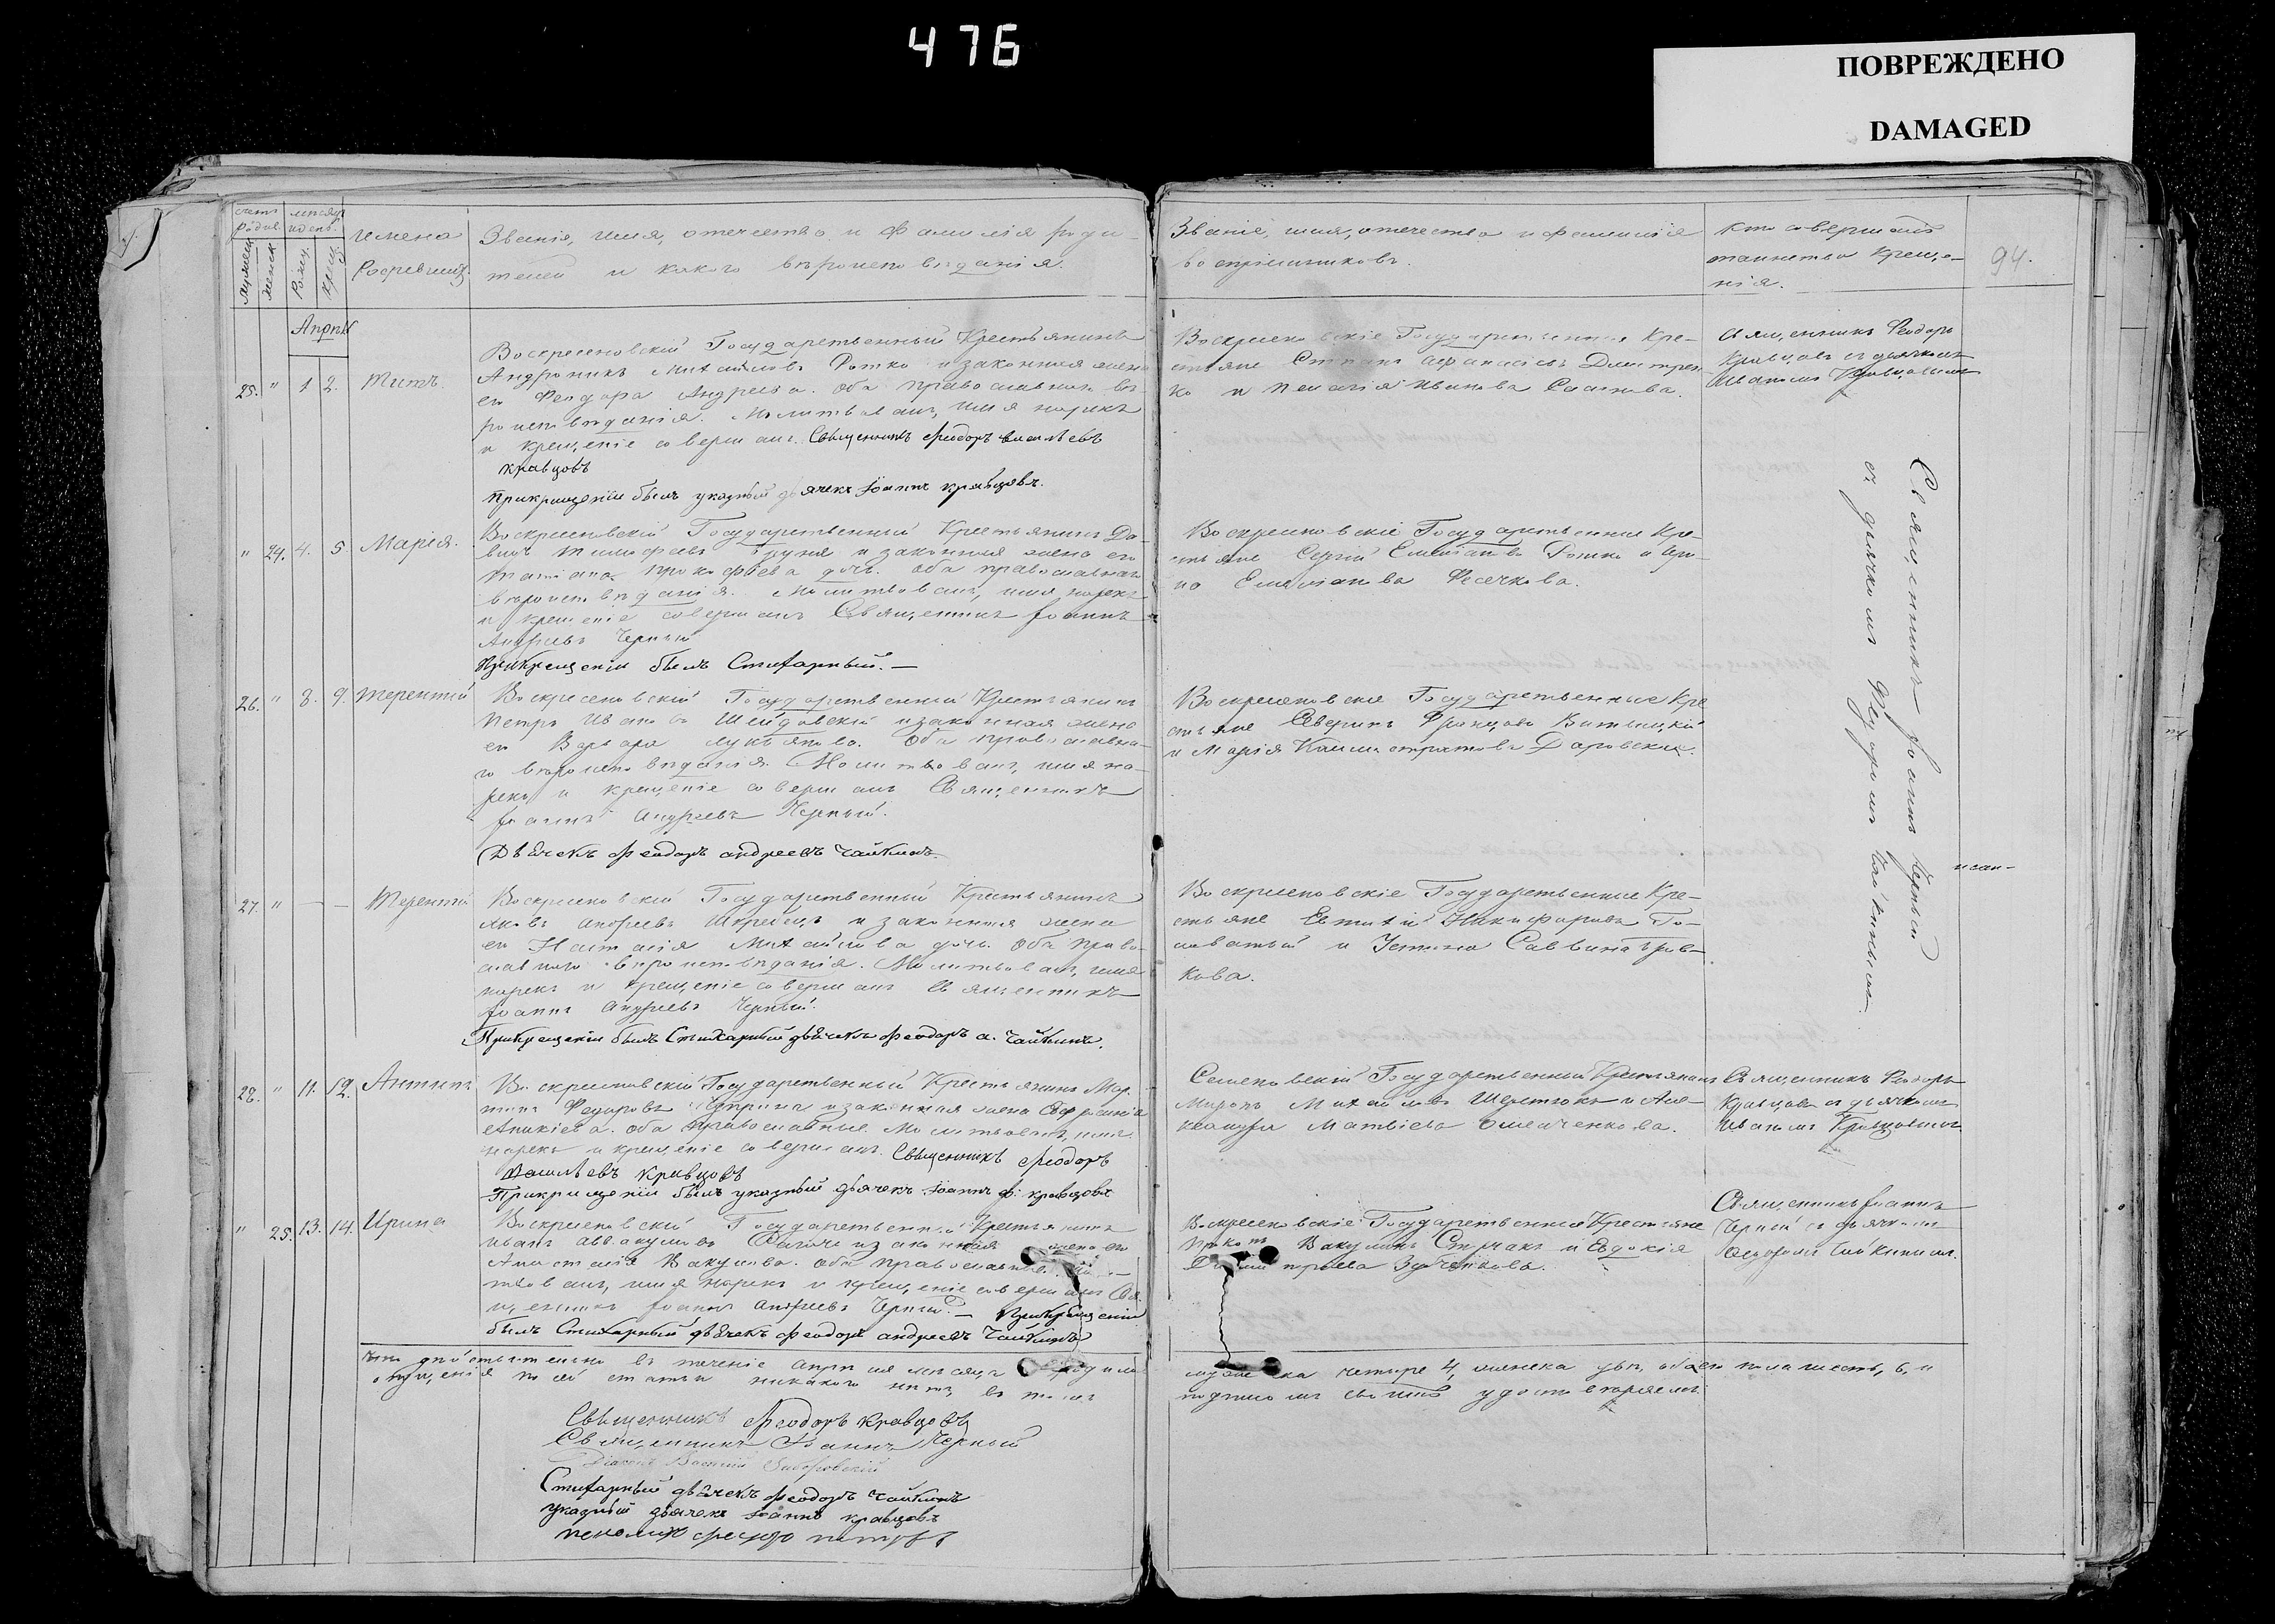 476
ПОВРЕЖДЕНО
DAMAGED
счетъ родив.
мѣсяцъ и день
мужеск
женск
Рожд.
Крещ.
Имена
Родившихъ.
Званіе, имя, отчество и фамилія роди-
телей и какого вѣроисповѣданія.
Званіе, имя, отчество и фамилія
воспріемниковъ.
Кто совершалъ
таинство креще-
нія.
94.
Апрѣль
25. " 1 2. Титъ.
Воскресеновскій Государственный Крестьянинъ
Андроникъ Михайловъ Ротко и законная жена
его Феодора Андреева. Оба православнаго вѣ-
роисповѣданія. Молитвовалъ, имя нарекъ
и крещеніе совершалъ Священникъ Феодоръ Васильевъ
Кравцовъ
При крищеніи былъ указный дьячекъ Іоаннъ Кравцовъ.
Воскресеновскіе Государственные Кре-
стьяне Степанъ Афанасіевъ Дмитрен-
ко и Пелагія Иванова
Священникъ Феодоръ
Кравцовъ съ дьячкомъ
Иваномъ Кравцовымъ
" 24. 4. 5. Марія.
Воскресеновскій Государственный Крестьянинъ Да-
видъ Тимофеевъ и законная жена его
Татіана Прокофіева дочь. Оба православнаго
вѣроисповѣданія. Молитвовалъ, имя нарекъ
и крещеніе совершалъ Священникъ Іоаннъ
Андреевъ Черный
При крещеніи былъ Стихарный. —
Воскресеновскіе Государственные Кре-
стьяне Сергій Емеліановъ Ротко и Ири-
на Емеліанова Фесечкова.
Священникъ Іоаннъ Черный
съ дьячкомъ Федоромъ Чайкинымъ
26. " 8. 9. Терентій
Воскресеновскій Государственный Крестьянинъ
Петръ Ивановъ Шейдовскій и законная жена
его Варвара Лукьянова. Оба православна-
го вѣроисповѣданія. Молитвовалъ, имя на-
рекъ и крещеніе совершалъ Священникъ
Іоаннъ Андреевъ Черный.
Дьячекъ Феодоръ Андреевъ Чайкинъ
Воскресеновскіе Государственные Кре
стьяне Северинъ Францовъ Витвицкій
и Марія Калистратова Даровская.
27. " — — Терентій
Воскресеновскій Государственный Крестьянинъ
Яковъ Андреевъ и законная жена
его Наталія Михайлова дочь. Оба право-
славнаго вѣроисповѣданія. Молитвовалъ, имя
нарекъ и крещеніе совершалъ Священникъ
Іоаннъ Андреевъ Черный.
При крещеніи былъ Стихарный дьячекъ Феодоръ А. Чайкинъ.
Воскресеновскіе Государственные Кре-
стьяне Евтихій Никифоровъ Го-
ловатый и Устина Саввина
кова.
28. " 11. 12. Антипъ
Воскресеновскій Государственный Крестьянинъ Мар-
тинъ Федоровъ Чуприна и законная жена Ефросинія
Аникіева. Оба православные. Молитвовалъ, имя
нарекъ и крещеніе совершалъ. Священникъ Феодоръ
Васильевъ Кравцовъ
При крищеніи былъ указный дьячекъ Іоаннъ Ф. Кравцовъ
Семеновскій Государственный Крестьянинъ
Миронъ Михайловъ Шерстюкъ и Але-
ксандра Матвіева Омельченкова.
Священникъ Феодоръ
Кравцовъ съ дьячкомъ
Иваномъ Кравцовымъ
" 25. 13. 14. Ирина
Воскресеновскій Государственный Крестьянинъ
Иванъ Аввакумовъ и законная жена его
Анастасія Вакулова. Оба православные.
твовалъ, имя нарекъ и крещеніе совершалъ Свя-
щенникъ Іоаннъ Андреевъ Черный. — При крещеніи
былъ Стихарный дьячекъ Феодоръ Андреевъ Чайкинъ
Воскресеновскіе Государственные Крестьяне
Прокопъ Вакулинъ Стрчакъ и Евдокія
Зубченкова.
Священникъ Іоаннъ
Черный съ дьячкомъ
Федоромъ Чайкинымъ.
Что дѣйствительно въ теченіе Апрѣля мѣсяца
опущенія по сей статьи никакого нѣтъ, въ томъ
четыре 4, женска двѣ, обаего пола шесть, 6, и
подписомъ своимъ удостовѣряемъ.
Священникъ Феодоръ Кравцовъ
Священникъ Іоаннъ Черный
Діаконъ Василій
Стихарный дьячекъ Феодоръ Чайкинъ
указный дьячекъ Іоаннъ Кравцовъ